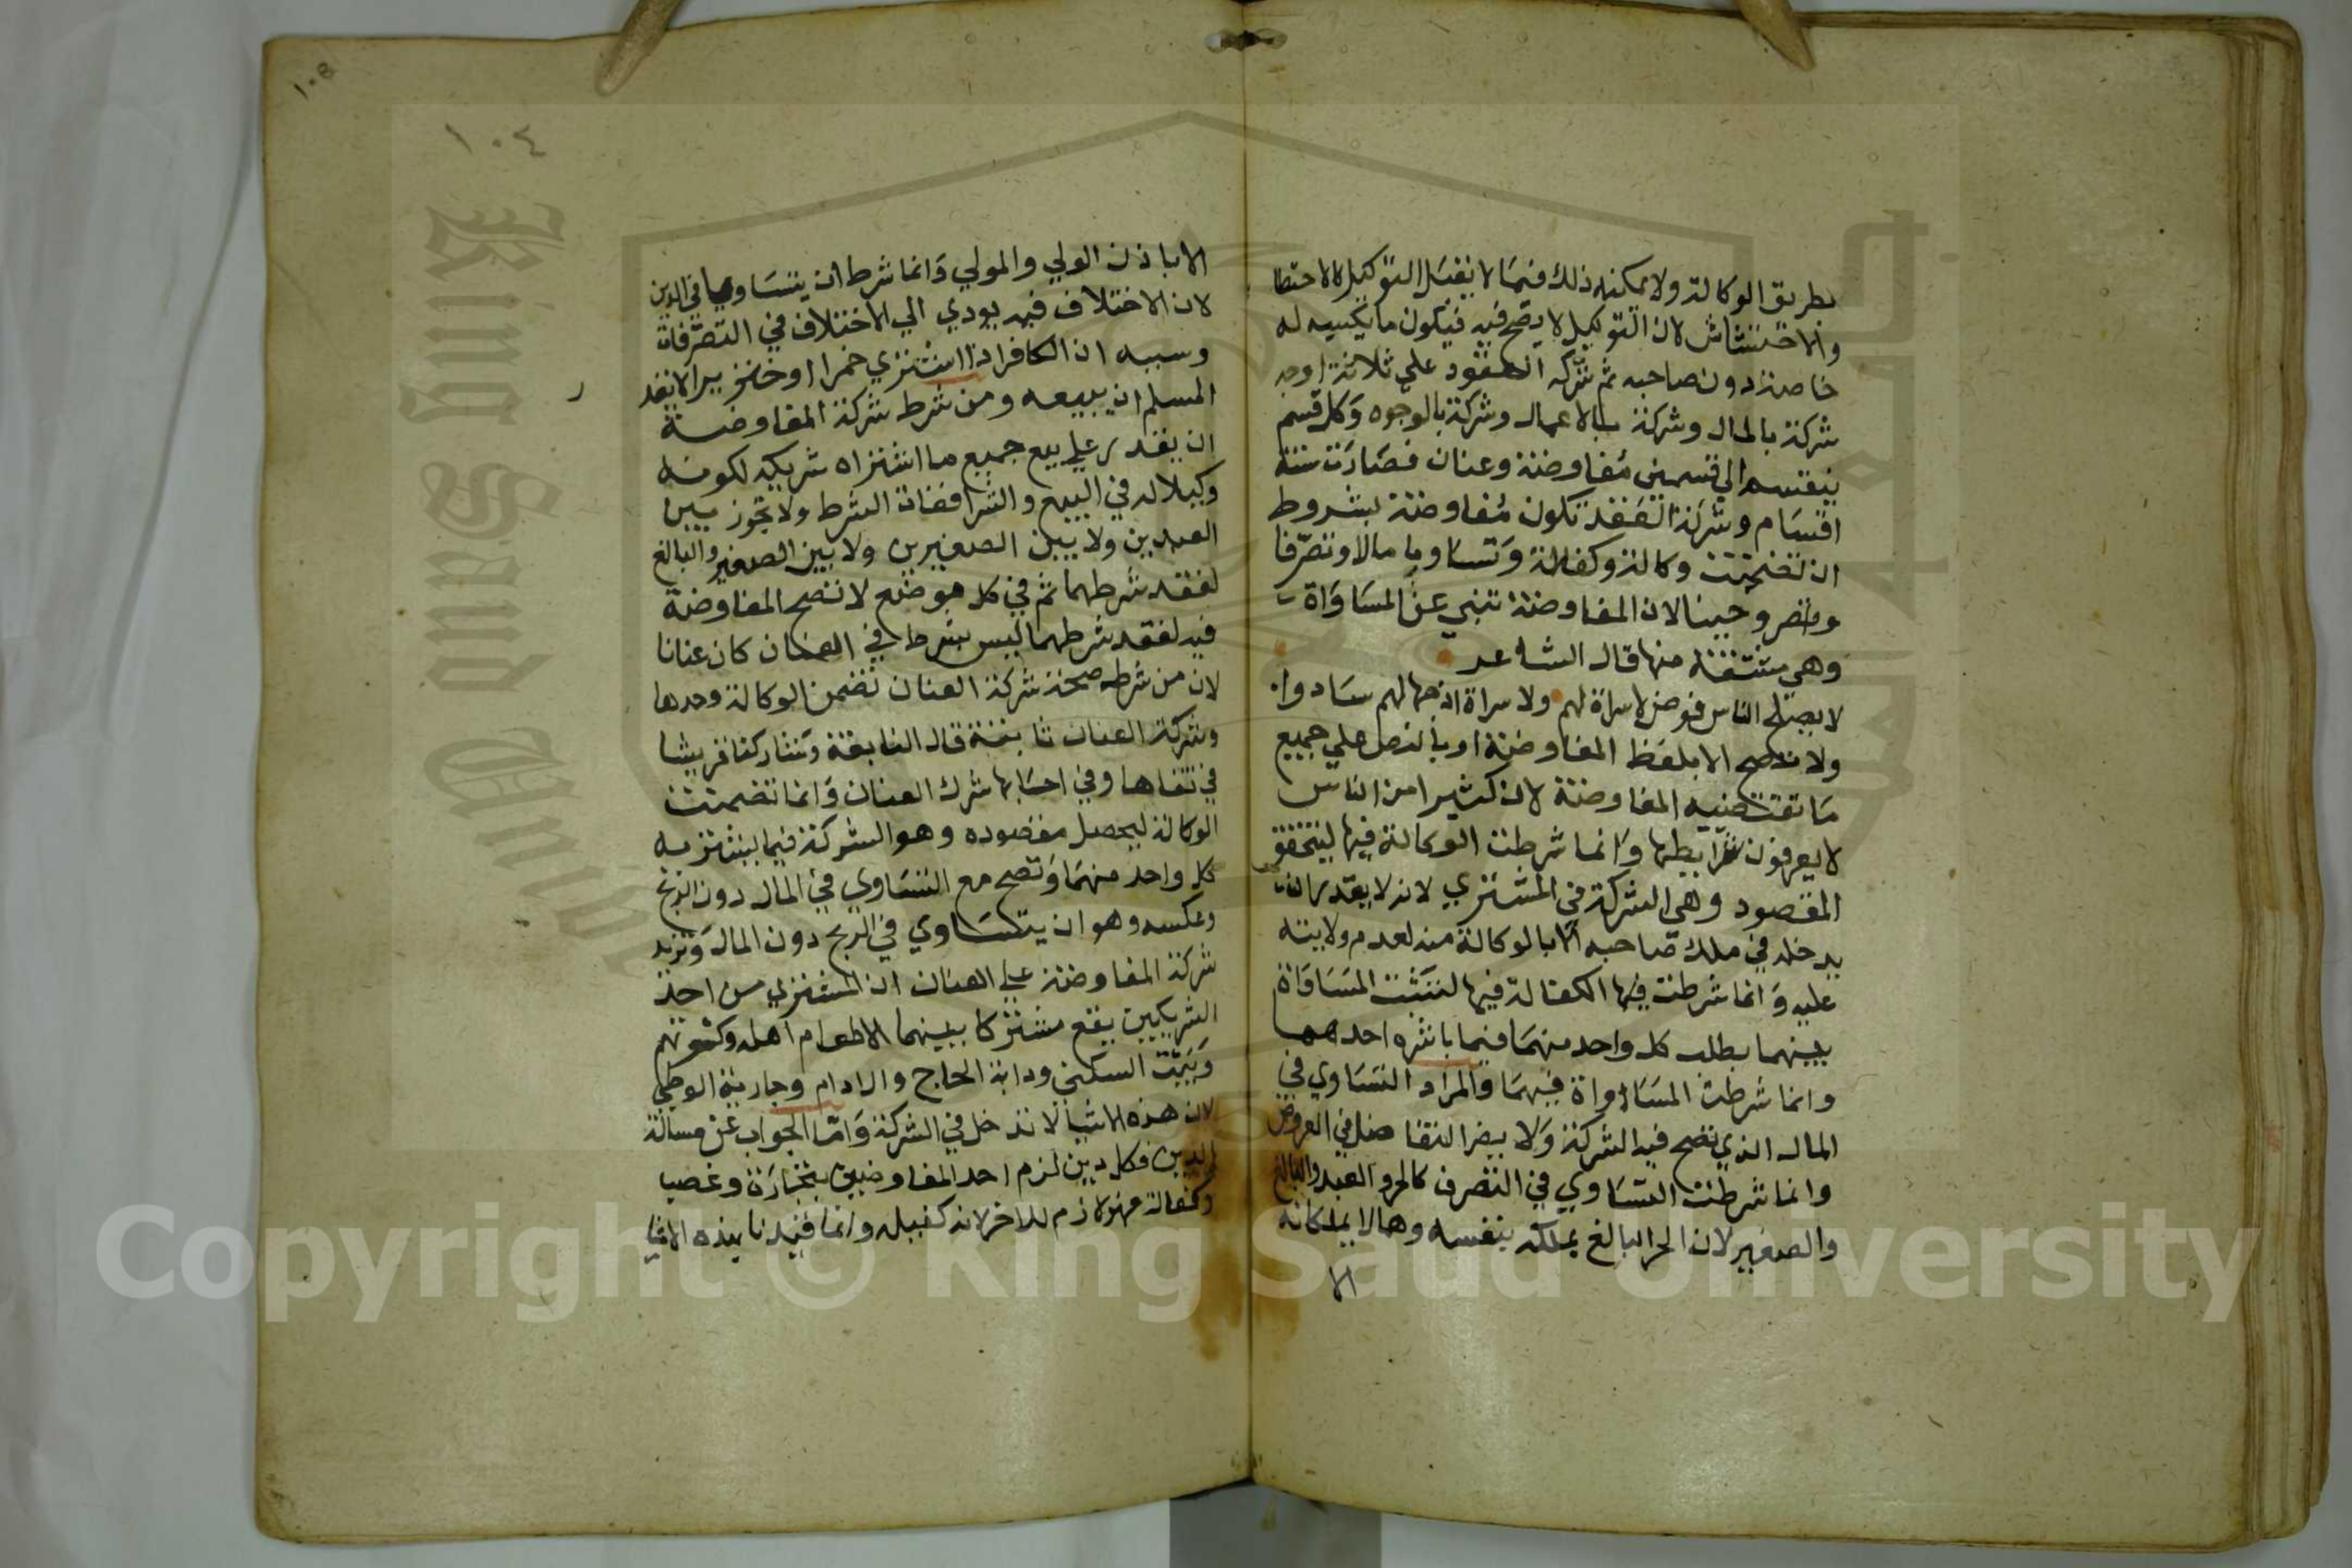 بطريق الوكالة ولا يمكنه ذلك فيما لا يقبل التوكيل كالاحتطا
والاحتشاش لان التوكيل لا يصح فيه فيكون ما يكسبه له
خاصة دون صاحبه ثم شركة العقود علي ثلاثة اوجه
شركة بالمال وشركة بالاعمال وشركة بالوجوه وكل قسم
ينقسم الي قسمين مفاوضة وعنان فصارت ستة
اقسام وشركة العقد تكون مفاوضة بشروط
ان تضمنت وكالة وكفالة وتساويا مالا وتصرفا
ودينا لان المفاوضة تنبي عن المساواة
وهي مشتقة منها قال الشاعر
لا يصلح الناس فوضي لا سراة لهم ولا سراة اذا جهالهم سادوا
ولا تصح الا بلفظ المفاوضة او بالنص علي جميع
ما تقتضيه المفاوضة لان كثيرا من الناس
لا يعرفون شرايطها وانما شرطت الوكالة فيها ليتحقق
المقصود وهي الشركة في المشتري لانه لا يقدر ان
يدخله في ملك صاحبه الا بالوكالة منه لعدم ولايته
عليه وانما شرطت فيها الكفالة فيها لتثبت المساواة
بينهما بطلب كل واحد منهما فيما باشره احدهما
وانما شرطت المساواة فيهما والمراد التساوي في
المال الذي تصح فيه الشركة ولا يضر التفاضل في العروض
وانما شرطت التساوي في التصرف كالحر والعبد والبالغ
والصغير لان الحر البالغ يملكه بنفسه وهما لا يملكانه
الا
١٠٤
الا باذن الولي والمولي وانما شرط ان يتساويا في الدين
لان الاختلاف فيه يودي الي الاختلاف في التصرفات
وسببه ان الكافر اذا اشتري خمرا او خنزيرا لا يقد
ر
المسلم ان يبيعه ومن شرط شركة المفاوضة
ان يقدر علي بيع جميع ما اشتراه شريكه لكونه
وكيلا له في البيع والشرا ففات الشرط ولا تجوز بين
العبدين ولا بين الصغيرين ولا بين الصغير والبالغ
لفقد شرطهما ثم في كل موضع لا تصح المفاوضة
فيه لفقد شرطهما ليس بشرط في العنان كان عنانا
لان من شرط صحة شركة العنان تضمن الوكالة وحدها
وشركة العنان ثابتة قال النابغة وشاركنا قريشا
في تقاها وفي احسابها شرك العنان وانما تضمنت
الوكالة ليحصل مقصوده وهو الشركة فيما يشتريه
كل واحد منهما وتصح مع التساوي في المال دون الربح
وعكسه وهو ان يتساوي في الربح دون المال وتزيد
شركة المفاوضة علي العنان ان المشتري من احد
الشريكين يقع مشتركا بينهما الا طعام اهله وكسوتهم
وبيت السكني ودابة الحاج والادام وجارية الوطي
لان هذه الاشيا لا تدخل في الشركة واما الجواب عن مسالة
الدين فكل دين لزم احد المفاوضين بتجارة وغصب
وكفالة فهو لازم للاخر لانه كفيله وانما قيدنا بهذه الاشيا
Copyright © King Saud University